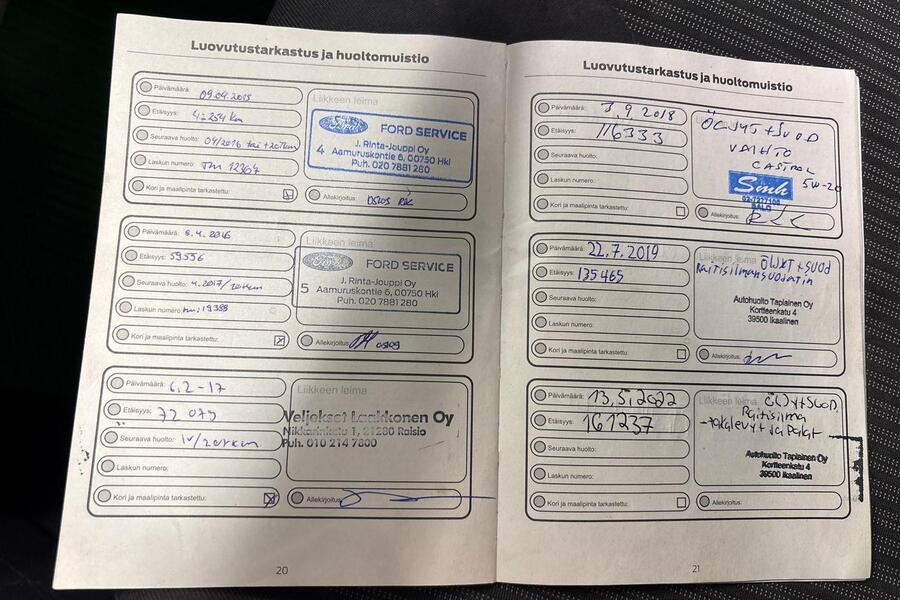 Luovutustarkastus ja huoltomuistio
Päivämäärä: 09.04.2015
Etäisyys: 42254 km
Seuraava huolto: 04/2016 tai +20Tkm
Laskun numero: 12364
Kori ja maalipinta tarkastettu:
Liikkeen leima
Ford
FORD SERVICE
4 J. Rinta-Jouppi Oy
Aamuruskontie 6, 00750 Hki
Puh. 020 7881 280
Allekirjoitus:
Päivämäärä: 8.4.2016
Etäisyys: 59556
Seuraava huolto: 4.2017/20Tkm
Laskun numero: 19388
Kori ja maalipinta tarkastettu:
Liikkeen leima
Ford
FORD SERVICE
5 J. Rinta-Jouppi Oy
Aamuruskontie 6, 00750 Hki
Puh. 020 7881 280
Allekirjoitus:
Päivämäärä: 6.2-17
Etäisyys: 72 079
Seuraava huolto: 1v/20Tkm
Laskun numero:
Kori ja maalipinta tarkastettu:
Liikkeen leima
Veljekset Laakkonen Oy
Nikkarinkatu 1, 21280 Raisio
Puh. 010 214 7800
Allekirjoitus:
20
Luovutustarkastus ja huoltomuistio
Päivämäärä: 3.9.2018
Etäisyys: 116333
Seuraava huolto:
Laskun numero:
Kori ja maalipinta tarkastettu:
ÖLJYT + SUOD
VAIHTO
CASTROL
5W-20
SALO
Allekirjoitus:
Päivämäärä: 22.7.2019
Etäisyys: 135465
Seuraava huolto:
Laskun numero:
Kori ja maalipinta tarkastettu:
Liikkeen leima
ÖLJYT + SUOD
Raitisilmansuodatin
Autohuolto Tapiainen Oy
Kortteenkatu 4
39500 Ikaalinen
Allekirjoitus:
Päivämäärä: 13.5.2022
Etäisyys: 161237
Seuraava huolto:
Laskun numero:
Kori ja maalipinta tarkastettu:
Liikkeen leima
ÖLJY + SUOD,
Raitisilma
Jakalevyt ja palat
Autohuolto Tapiainen Oy
Kortteenkatu 4
39500 Ikaalinen
Allekirjoitus:
21